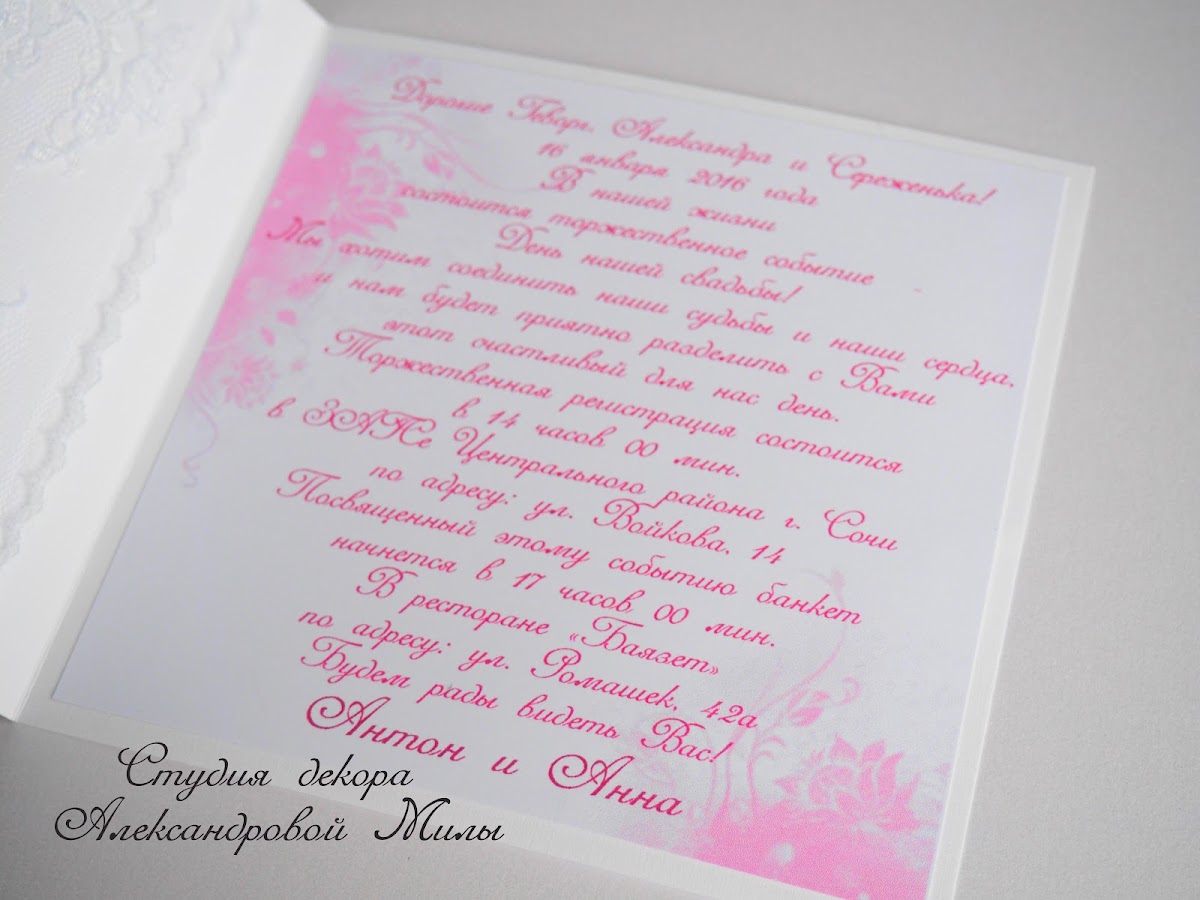 Дорогие Геворг, Александра и Сереженька!
16 января 2016 года
В нашей жизни
состоится торжественное событие
День нашей свадьбы!
Мы хотим соединить наши судьбы и наши сердца.
и нам будет приятно разделить с Вами
этот счастливый для нас день.
Торжественная регистрация состоится
в 14 часов 00 мин.
в ЗАГСе Центрального района г. Сочи
по адресу: ул. Войкова, 14
Посвященный этому событию банкет
начнется в 17 часов 00 мин.
В ресторане «Баязет»
по адресу: ул. Ромашек, 42а
Будем рады видеть Вас!
Антон и Анна
Студия декора
Александровой Милы